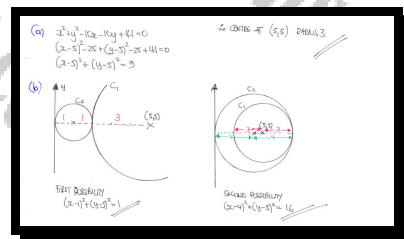 (a) x²+y²-10x-10y+41=0
(x-5)²-25+(y-5)²-25+41=0
(x-5)²+(y-5)²=9
∴ CENTRE AT (5,5) RADIUS 3
(b)
y
C₁
C₂
1 1 3 (5,5)
FIRST POSSIBILITY
(x-1)²+(y-5)²=1
C₂
C₁
(5,5)
3 3
4 4
SECOND POSSIBILITY
(x-4)²+(y-5)²=16